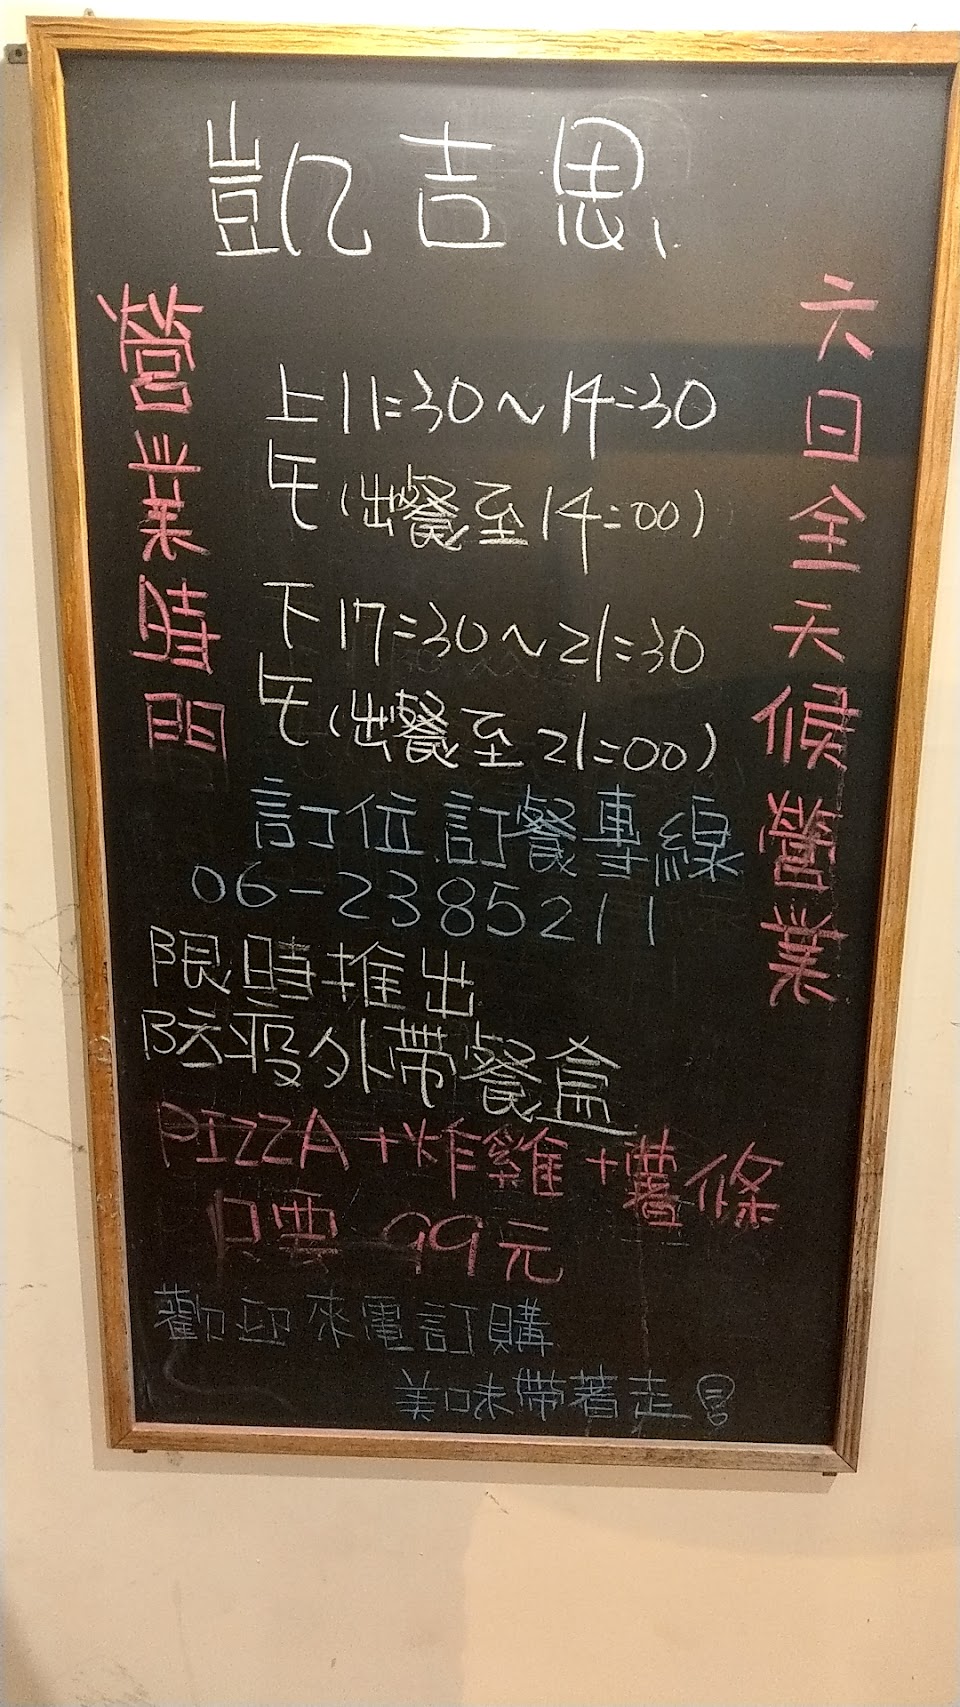 凱吉思
營業時間
上11:30~14:30
午(出餐至14:00)
下17:30~21:30
午(出餐至21:00)
六日全天候營業
訂位訂餐專線
06-2385211
限時推出
防疫外帶餐盒
PIZZA+炸雞+薯條
只要 99元
歡迎來電訂購
美味帶著走